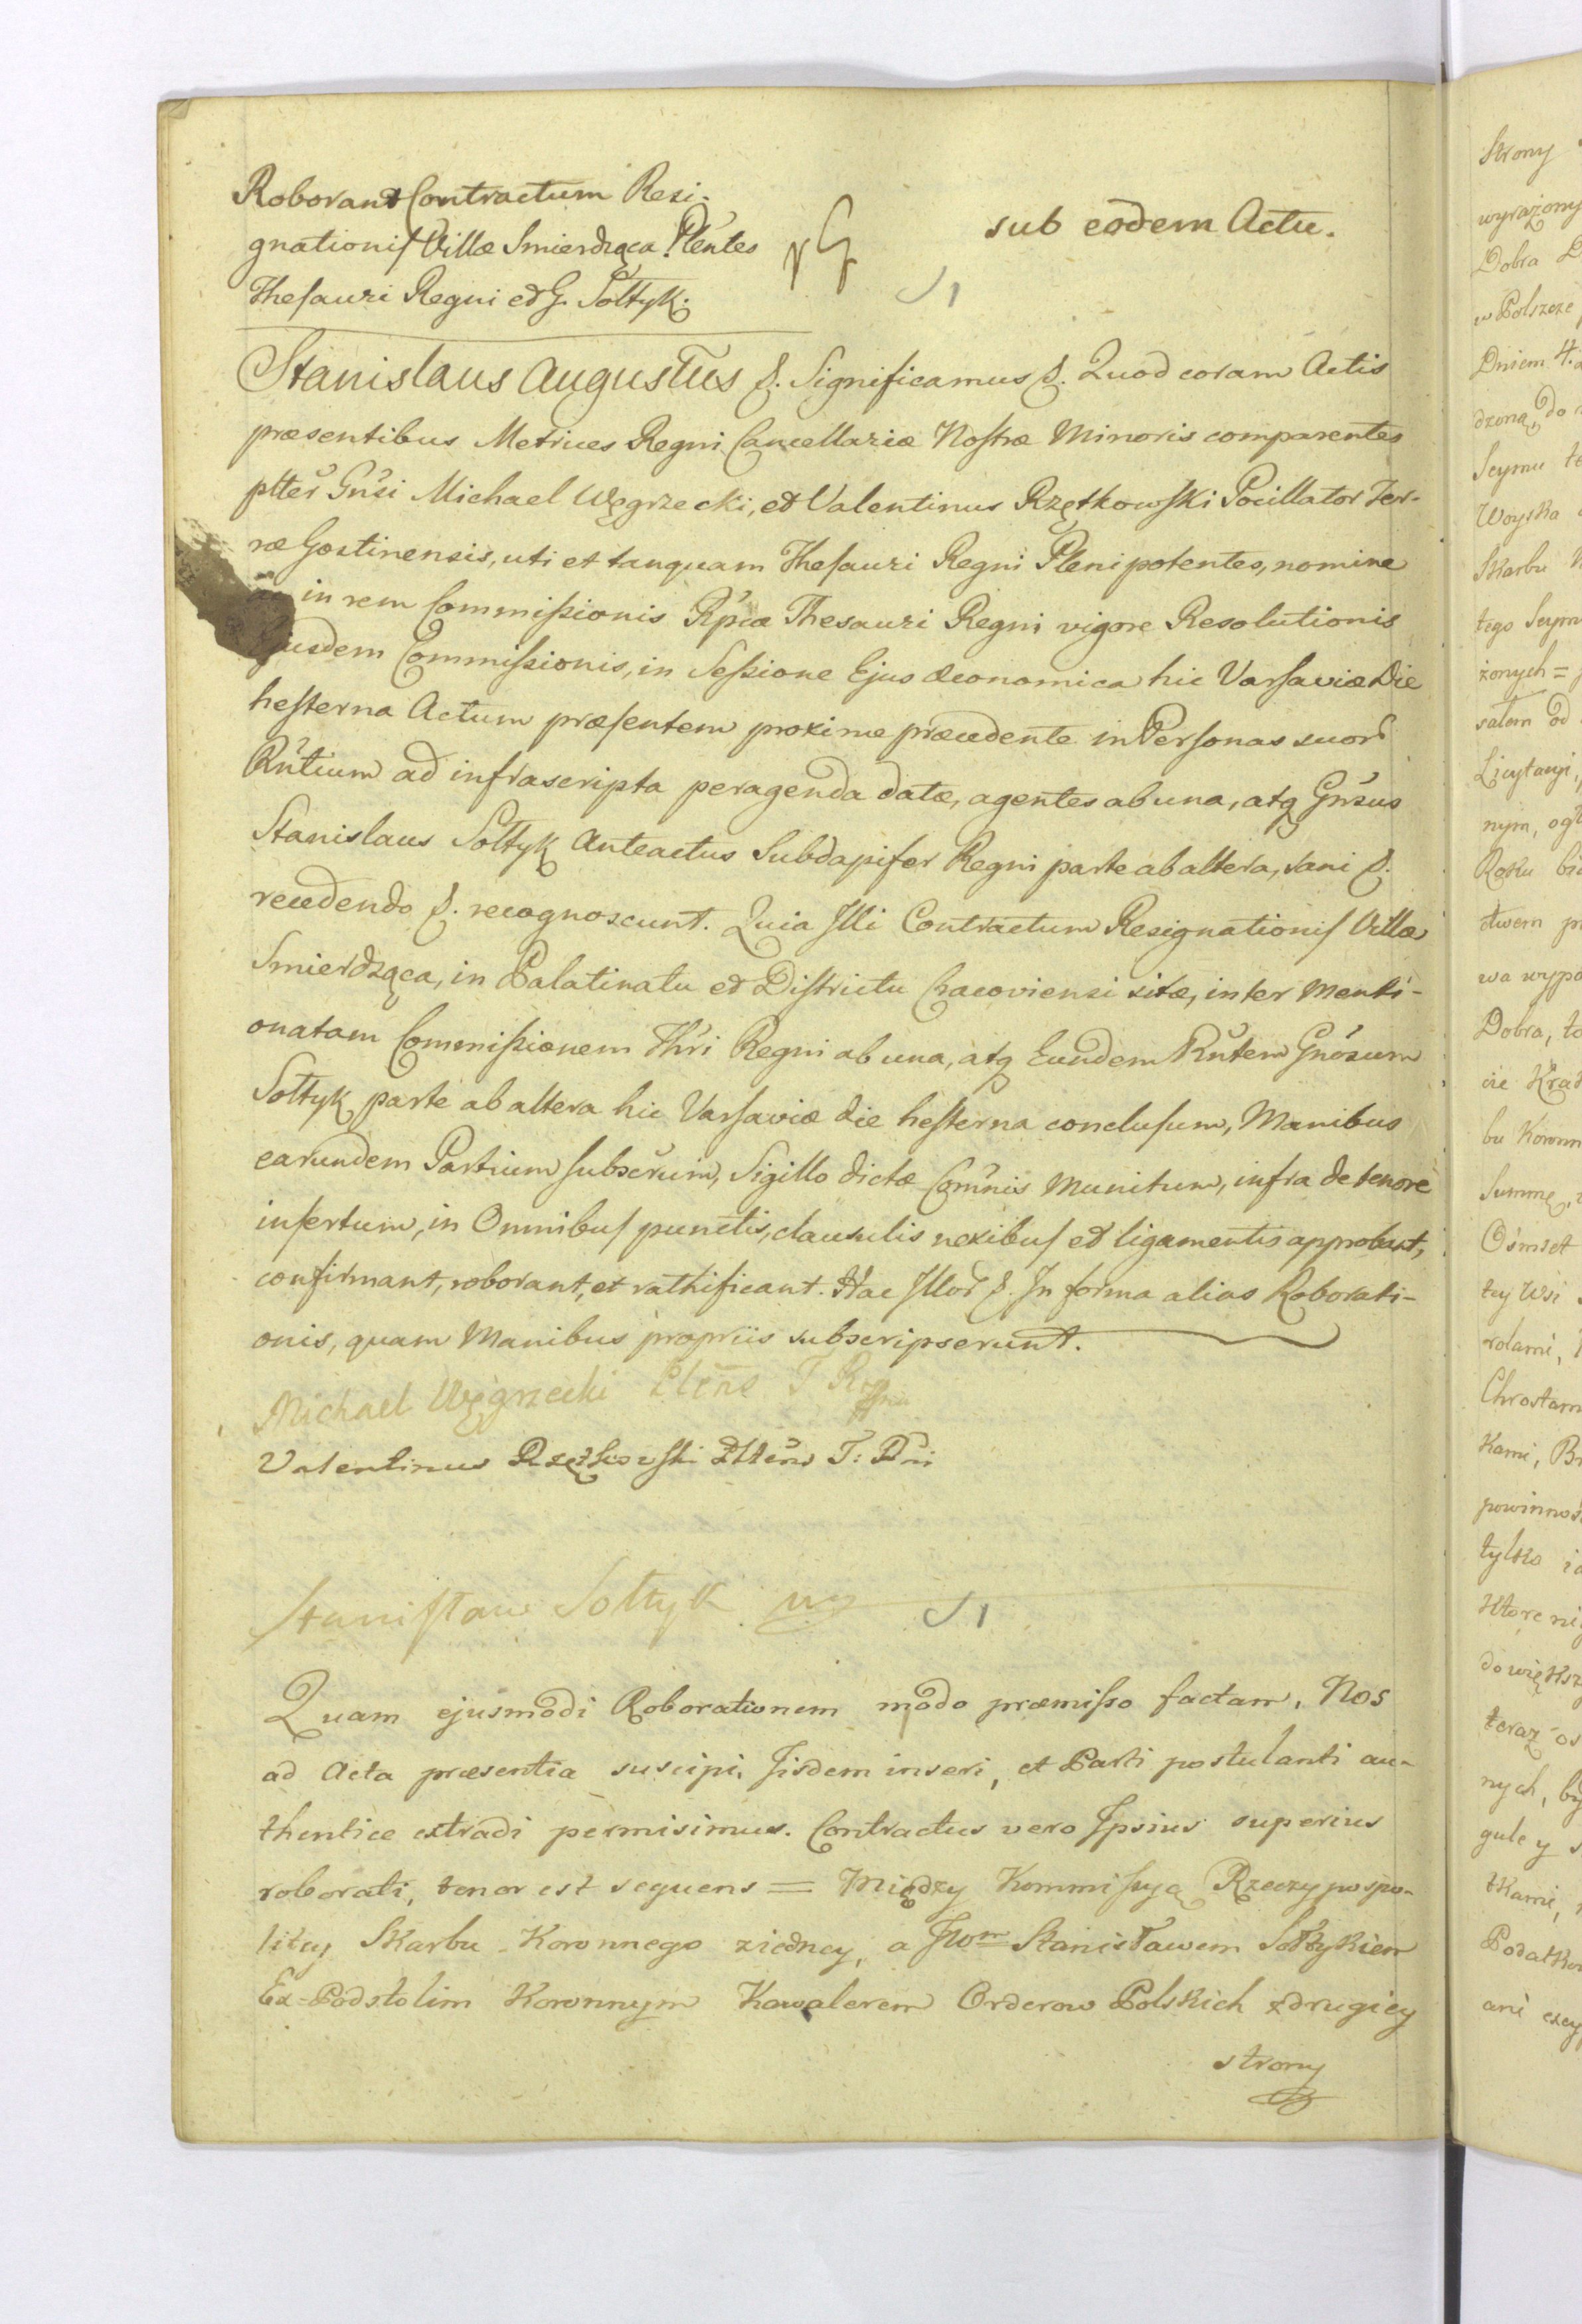 Roborant Contractum Resi-
gnationis Villæ Smierdząca Pltentes
Thesauri Regni et G. Sołtyk.
sub eodem Actu.
Stanislaus Augustus &. Significamus &. Quod coram Actis
præsentibus Metrices Regni Cancellariæ Nostræ Minoris comparentes
pltter Gnsi Michael Węgrzecki, et Valentinus Rzętkowski Pocillator Ter-
ræ Gostinensis, uti et tanquam Thesauri Regni Plenipotentes, nomine
in rem Commissionis Rpcæ Thesauri Regni vigore Resolutionis
Ejusdem Commissionis, in Sessione Ejus Œconomica hic Varsaviæ Die
hesterna Actum præsentem proxime præcedente in Personas suor
Rntium ad infrascripta peragenda datæ, agentes ab una, atq Gnsus
Stanislaus Sołtyk Anteactus Subdapifer Regni parte ab altera, sani &.
recedendo &. recognoscunt. Quia Illi Contractum Resignationis Villæ
Smierdząca, in Palatinatu et Districtu Cracoviensi sitæ, inter Menti-
onatam Commissionem Thri Regni ab una, atq Eundem Rntem Gnosum
Sołtyk parte ab altera hic Varsaviæ die hesterna conclusum, Manibus
earundem Partium subscrum, Sigillo dictæ Comnis Munitum, infra de tenore
insertum, in Omnibus punctis, clausulis nexibus et ligamentis approbant,
confirmant, roborant, et rathificant. Hac Illor &. In forma alias Roborati-
onis, quam Manibus propriis subscripserunt.
Michael Węgrzecki Pltns T Rgni
Valentinus Rzętkowski Pltens T: Rni
Stanisław Sołtyk mp
Quam ejusmodi Roborationem modo præmisso factam, Nos
ad Acta præsentia suscipi, Iisdem inseri, et Parti postulanti au-
thentice extradi permisimus. Contractus vero Ipsius superius
roborati, tenor est sequens = Między Kommissyą Rzeczypospo-
litey Skarbu Koronnego ziedney, a JWm Stanisławem Sołtykiem
Ex-Podstolim Koronnym Kawalerem Orderow Polskich zdrugiey
strony